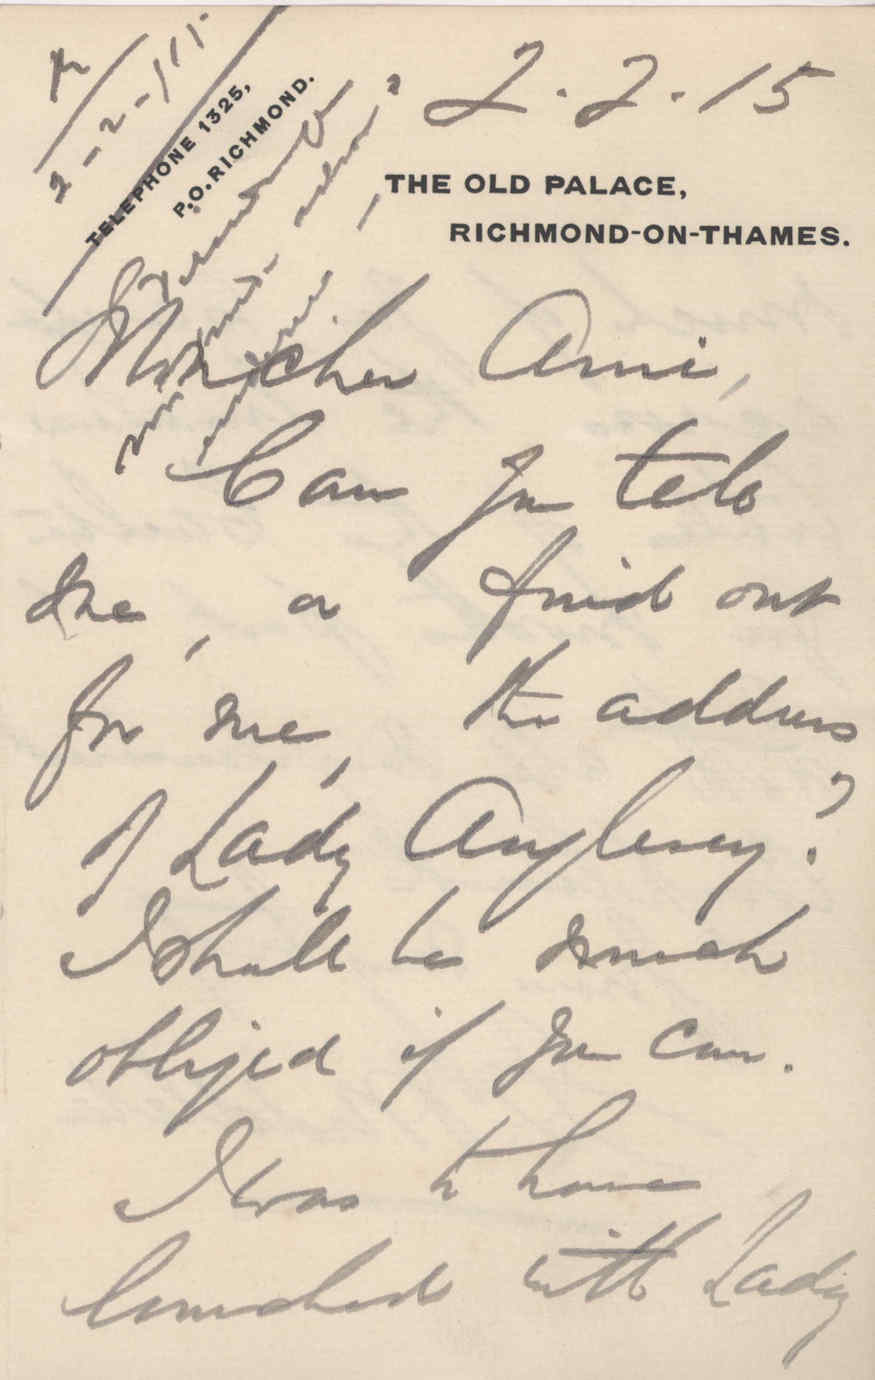 2-2-15
2.2.15
TELEPHONE 1325,
P.O. RICHMOND.
THE OLD PALACE,
RICHMOND-ON-THAMES.
Mon cher Ami,
Can you tell
me, or find out
for me, the address
of Lady Anglesey?
I shall be much
obliged if you can.
I was to have
lunched with Lady